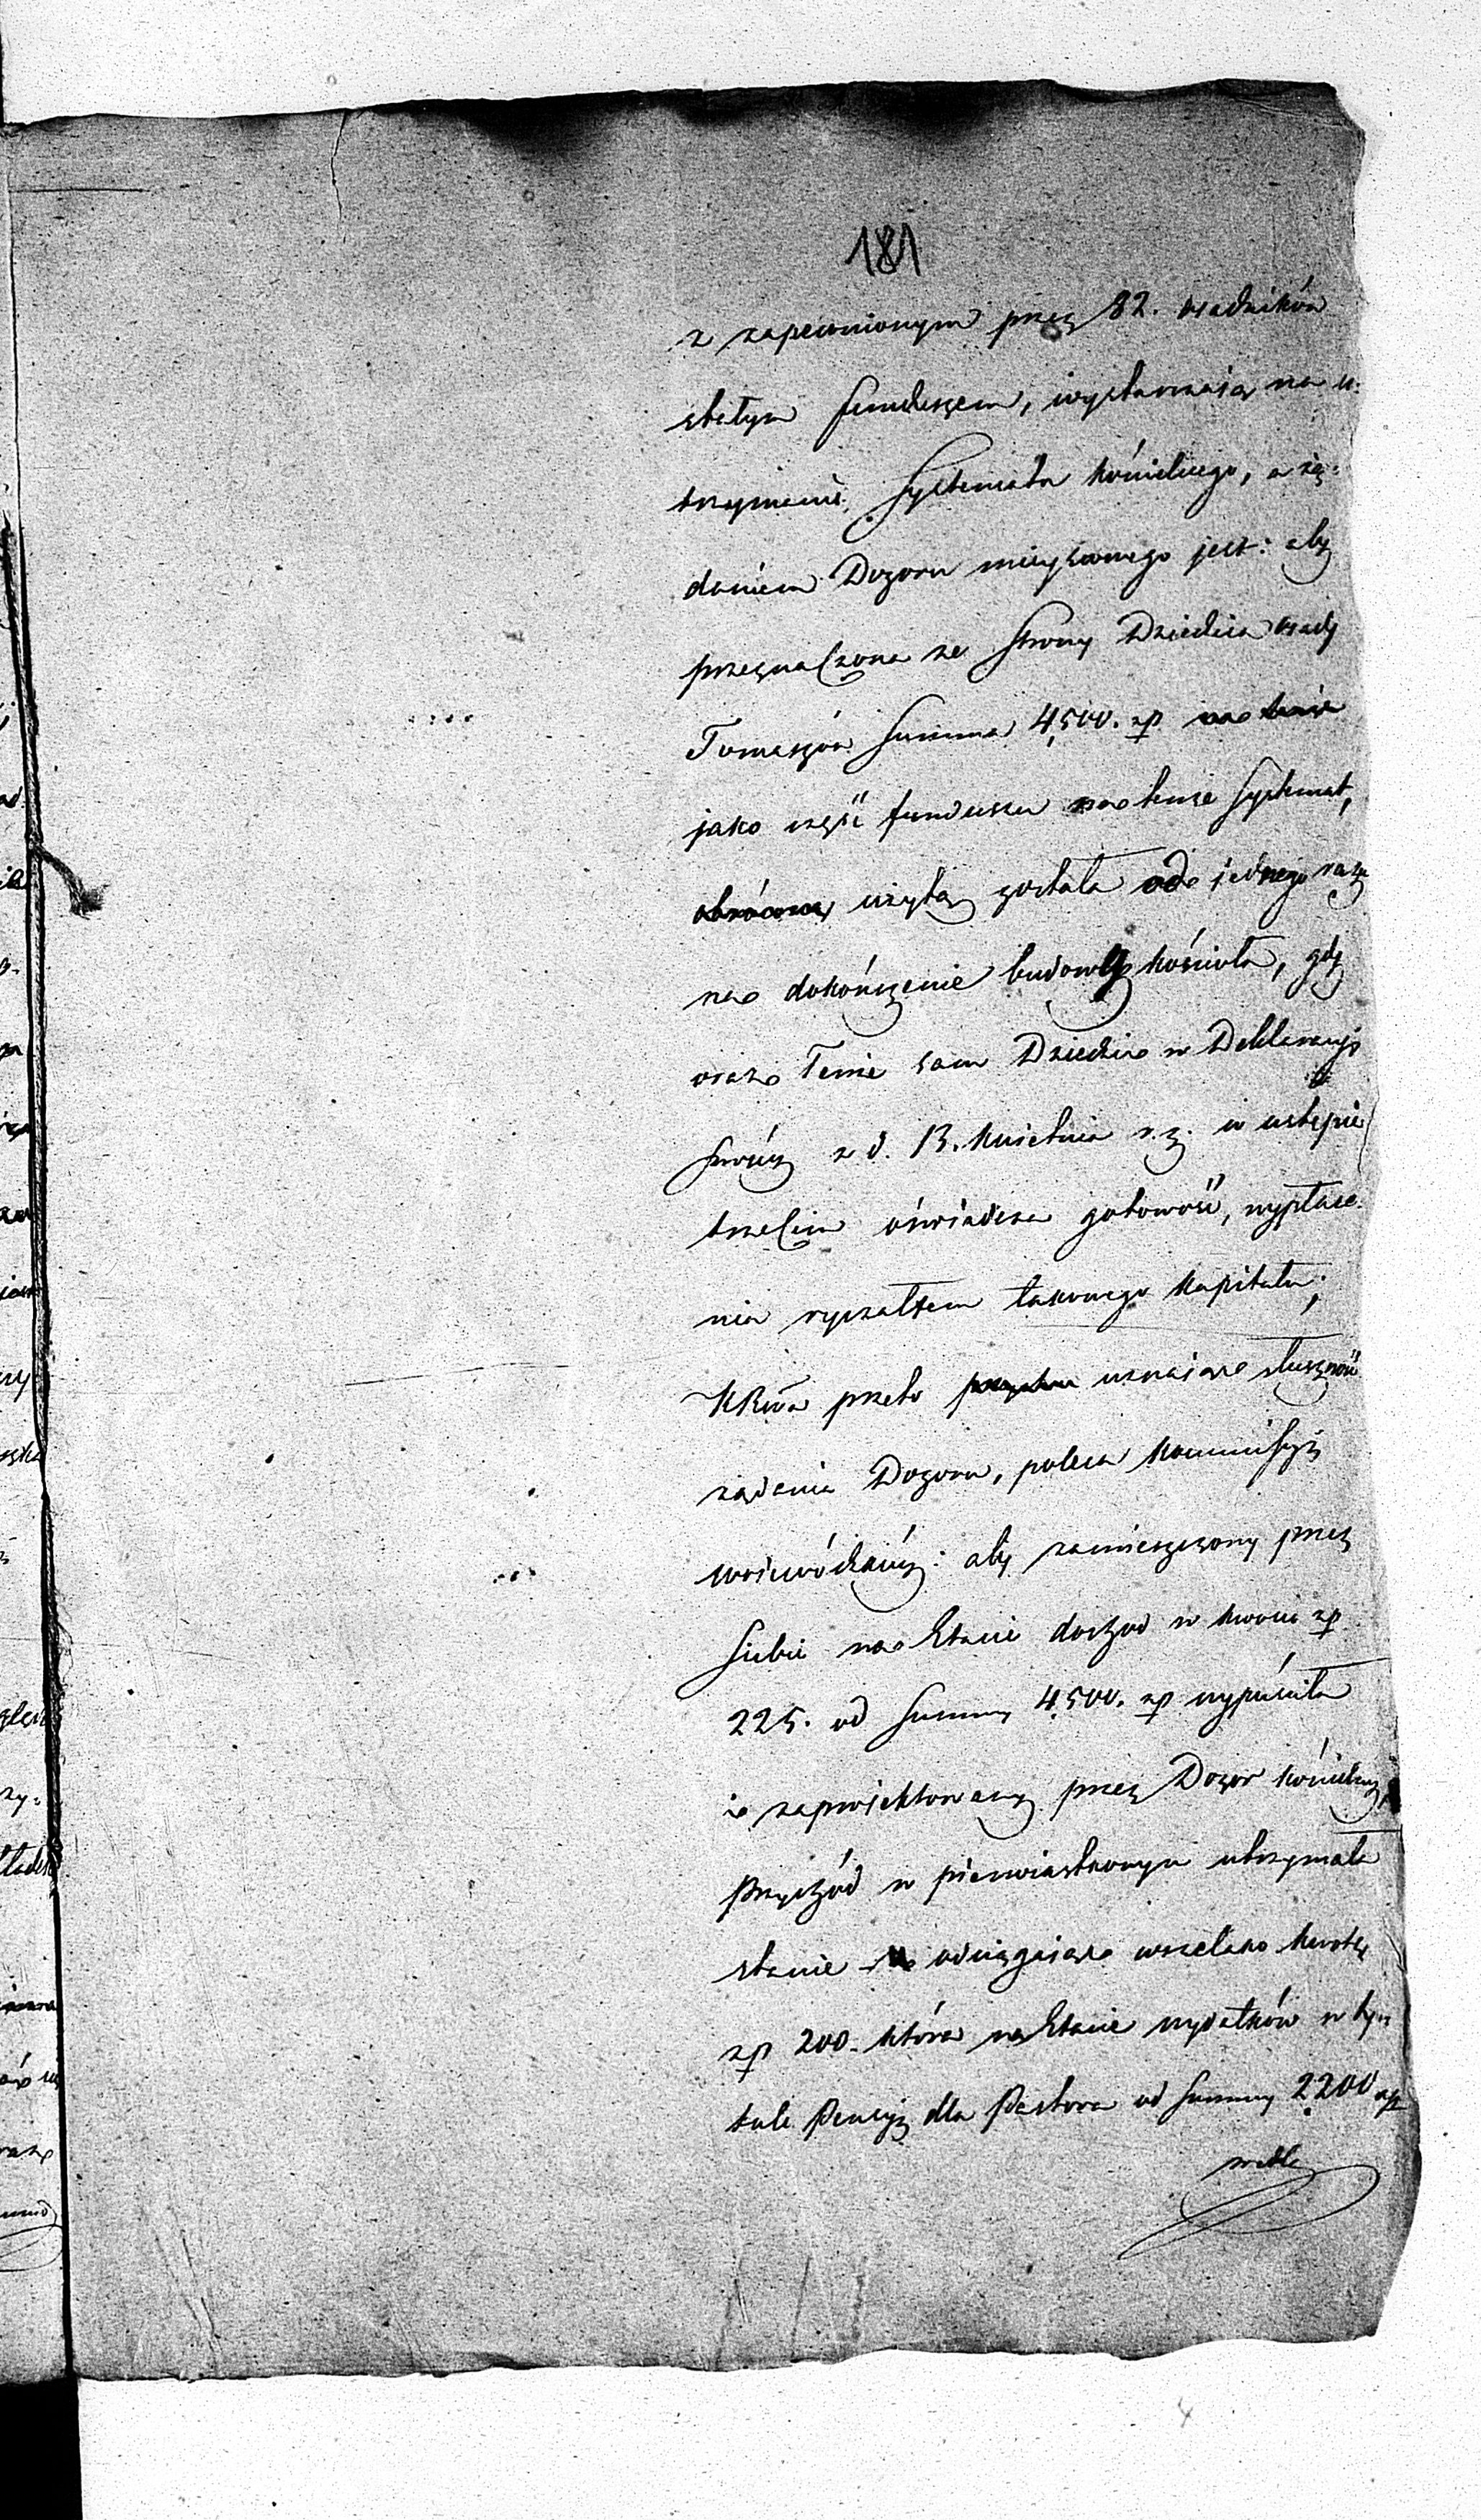 181
z zapewnionym przez 82. osadników
stałym funduszem, wystarczaią na u-
trzymanie Systematu kościelnego, a żą-
daniem Dozoru mieyscowego jest: aby
przeznaczona ze strony Dziedzica osady
Tomaszów Summa 4,500. zp na tenże
jako część funduszu na tenże Systemat,
obrócona użytą została od jednego razu
na dokończenie budowly kościoła, gdy
oraz Tenże sam Dziedzic w Deklaracyi
swéy z d. 13. kwietnia r. z. w ustępie
trzecim oświadcza gotowość, wypłace-
nia ryczałtem takowego kapitału;
KRwa przeto uznaiąc słuszność
żądania Dozoru, poleca kommissyi
woiewódzkiéy: aby zamieszczony przez
siebie na Etacie dochod w kwocie zp
225. od Summy 4,500. zp wypuściła
i zaproiektowany przez Dozor kościelny,
Przychód w pierwiastkowym utrzymała
stanie odciągaiąc wszelako kwotę
zp 200. która na Etacie wydatków w ty-
tule Pensyi dla Pastora od Summy 2200 zp